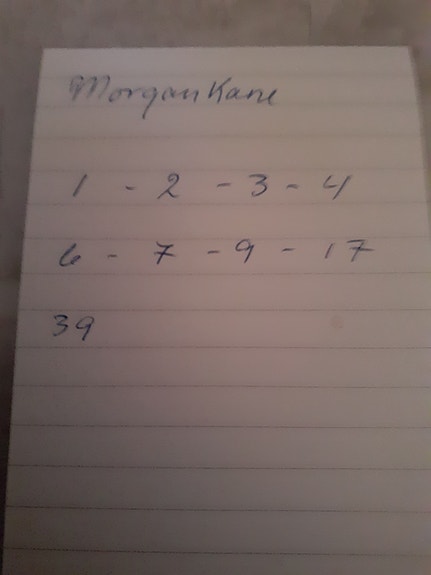 Morgan Kane
1 - 2 - 3 - 4
6 - 7 - 9 - 17
39